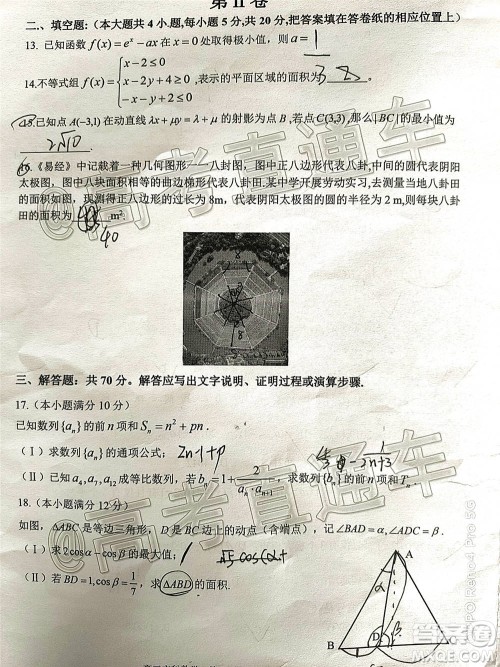 第 II 卷
二、填空题:(本大题共 4 小题,每小题 5 分,共 20 分,把答案填在答卷纸的相应位置上)
13. 已知函数 f(x)=eˣ-ax 在 x=0 处取得极小值，则 a= 1
14.不等式组 f(x)={x-2≤0 x-2y+4≥0 -x-y+2≤0 ,表示的平面区域的面积为 3
15.已知点 A(-3,1) 在动直线 λx+μy=λ+μ 的射影为点 B ,若点 C(3,3) ,那么|BC|的最小值为
2√10
16.《易经》中记载着一种几何图形——八封图，图中正八边形代表八卦，中间的圆代表阴阳
太极图，图中八块面积相等的曲边梯形代表八卦田.某中学开展劳动实习，去测量当地八卦田
的面积如图，现测得正八边形的边长为 8m，代表阴阳太极图的圆的半径为 2 m,则每块八卦
田的面积为 m².
40
8
三、解答题：共 70 分。解答应写出文字说明、证明过程或演算步骤.
17.(本小题满分 10 分)
已知数列{aₙ}的前 n 项和 Sₙ=n²+pn.
(Ⅰ) 求数列{aₙ}的通项公式; 2n-1+p
(Ⅱ) 已知 a₄,a₇,a₁₂ 成等比数列，若 bₙ=1+2/(aₙ·aₙ₊₁) ,求数列{bₙ}的前 n 项和 Tₙ.
1/(2n+3)
18.(本小题满分 12 分)
如图，ΔABC 是等边三角形，D 是 BC 边上的动点（含端点），记∠BAD=α,∠ADC=β .
(Ⅰ) 求 2cosα-cosβ 的最大值;
(Ⅱ) 若 BD=1,cosβ=1/7 ，求 ΔABD 的面积.
A
α
β
B
D
C
@高考直通车
@高考直通车
PC Reno4 Pro 5G
答案圈
MXQE.COM